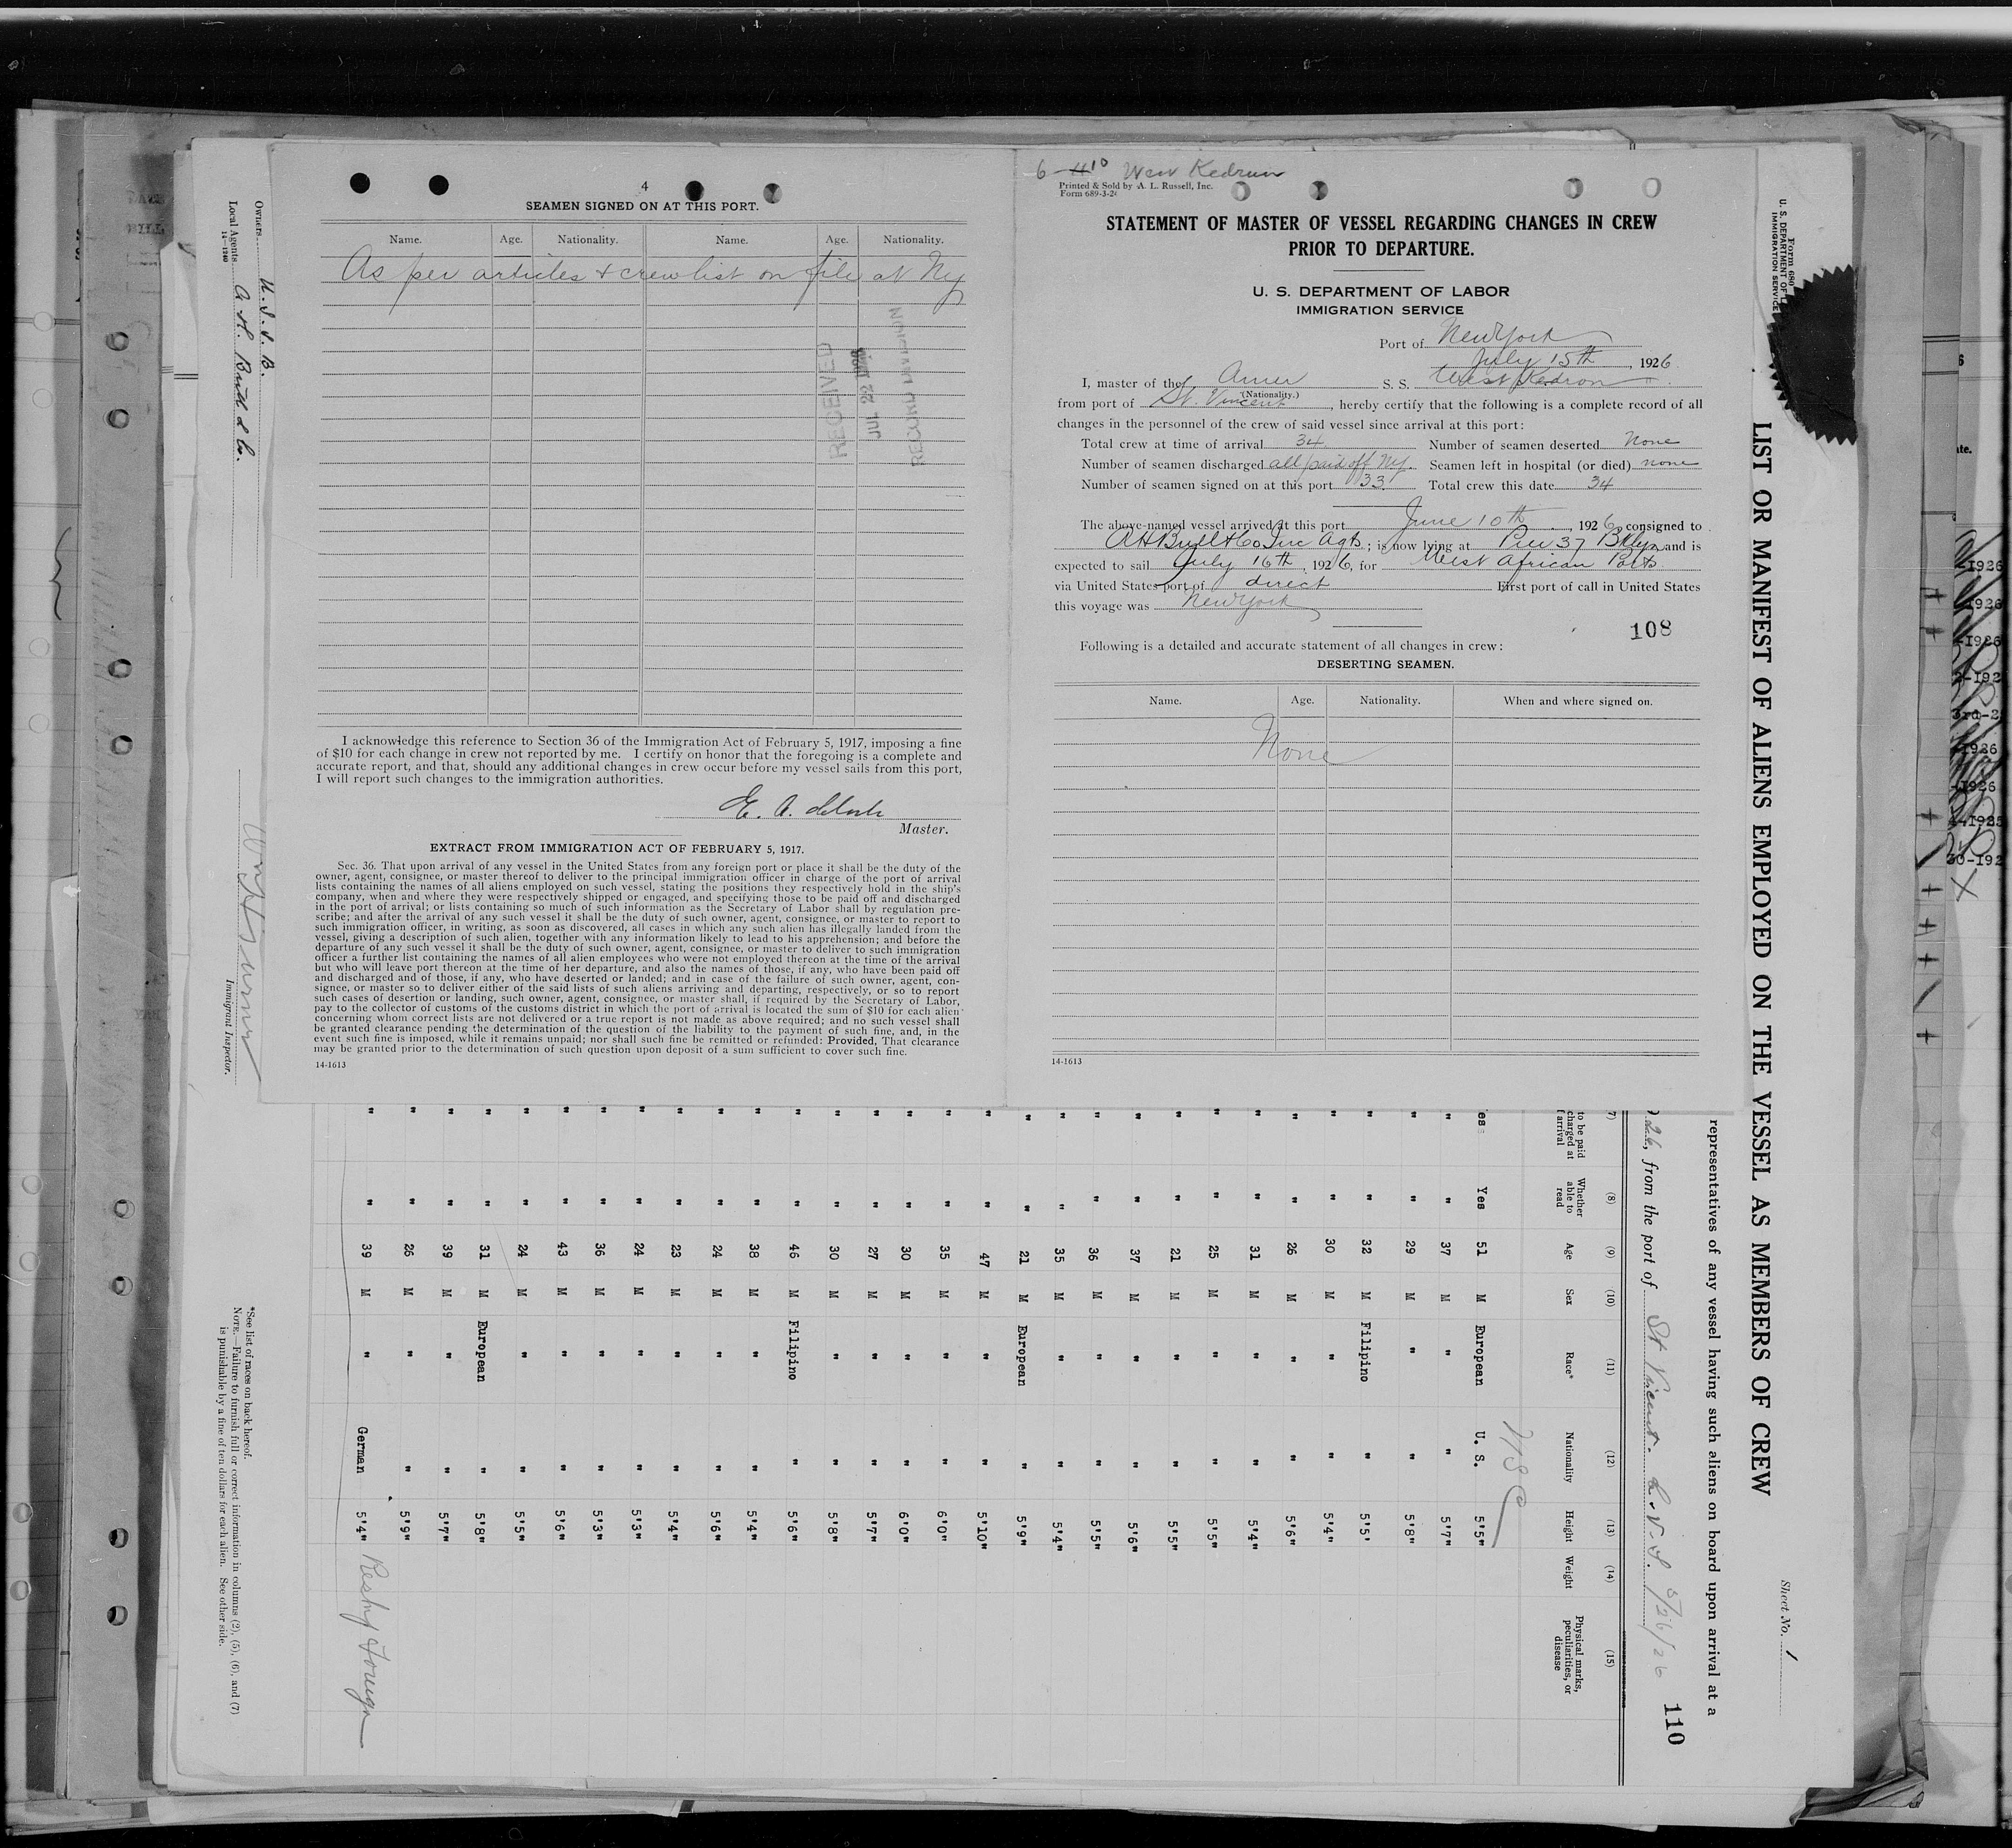 4
SEAMEN SIGNED ON AT THIS PORT.
Name. Age. Nationality. Name. Age. Nationality.
As per articles & crew list on file at Ny
RECEIVED
JUL 22
RECORD DIVISION
I acknowledge this reference to Section 36 of the Immigration Act of February 5, 1917, imposing a fine
of $10 for each change in crew not reported by me. I certify on honor that the foregoing is a complete and
accurate report, and that, should any additional changes in crew occur before my vessel sails from this port,
I will report such changes to the immigration authorities.
E. A.
Master.
EXTRACT FROM IMMIGRATION ACT OF FEBRUARY 5, 1917.
Sec. 36. That upon arrival of any vessel in the United States from any foreign port or place it shall be the duty of the
owner, agent, consignee, or master thereof to deliver to the principal immigration officer in charge of the port of arrival
lists containing the names of all aliens employed on such vessel, stating the positions they respectively hold in the ship's
company, when and where they were respectively shipped or engaged, and specifying those to be paid off and discharged
in the port of arrival; or lists containing so much of such information as the Secretary of Labor shall by regulation pre-
scribe; and after the arrival of any such vessel it shall be the duty of such owner, agent, consignee, or master to report to
such immigration officer, in writing, as soon as discovered, all cases in which any such alien has illegally landed from the
vessel, giving a description of such alien, together with any information likely to lead to his apprehension; and before the
departure of any such vessel it shall be the duty of such owner, agent, consignee, or master to deliver to such immigration
officer a further list containing the names of all alien employees who were not employed thereon at the time of the arrival
but who will leave port thereon at the time of her departure, and also the names of those, if any, who have been paid off
and discharged and of those, if any, who have deserted or landed; and in case of the failure of such owner, agent, con-
signee, or master so to deliver either of the said lists of such aliens arriving and departing, respectively, or so to report
such cases of desertion or landing, such owner, agent, consignee, or master shall, if required by the Secretary of Labor,
pay to the collector of customs of the customs district in which the port of arrival is located the sum of $10 for each alien
concerning whom correct lists are not delivered or a true report is not made as above required; and no such vessel shall
be granted clearance pending the determination of the question of the liability to the payment of such fine, and, in the
event such fine is imposed, while it remains unpaid; nor shall such fine be remitted or refunded: Provided, That clearance
may be granted prior to the determination of such question upon deposit of a sum sufficient to cover such fine.
14-1613
6-10 West Kedron
Printed & Sold by A. L. Russell, Inc.
Form 689-3-26
STATEMENT OF MASTER OF VESSEL REGARDING CHANGES IN CREW
PRIOR TO DEPARTURE.
U. S. DEPARTMENT OF LABOR
IMMIGRATION SERVICE
Port of New York
July 15th, 1926
I, master of the Amer S. S. West Kedron
(Nationality.)
from port of St. Vincent, hereby certify that the following is a complete record of all
changes in the personnel of the crew of said vessel since arrival at this port:
Total crew at time of arrival 34 Number of seamen deserted None
Number of seamen discharged all paid off Ny. Seamen left in hospital (or died) none
Number of seamen signed on at this port 33 Total crew this date 34
The above-named vessel arrived at this port June 10th, 1926, consigned to
AH Bull & Co Inc Agts; is now lying at Pier 37 Bklyn and is
expected to sail July 16th, 1926, for West African Ports
via United States port of direct First port of call in United States
this voyage was New York
108
Following is a detailed and accurate statement of all changes in crew:
DESERTING SEAMEN.
Name. Age. Nationality. When and where signed on.
None
14-1613
Form 680
U. S. DEPARTMENT OF LABOR
IMMIGRATION SERVICE
LIST OR MANIFEST OF ALIENS EMPLOYED ON THE VESSEL AS MEMBERS OF CREW
Sheet No. 1
representatives of any vessel having such aliens on board upon arrival at a
110
26, from the port of St Vincent. C.V.I. 5/26/26
(7) (8) (9) (10) (11) (12) (13) (14) (15)
to be paid charged at arrival Whether able to read Age Sex Race* Nationality Height Weight Physical marks, peculiarities, or disease
USC
es Yes 51 M European U. S. 5'5"
" " 37 M " " 5'7"
" " 29 M " " 5'8"
" " 32 M Filipino " 5'5'
" " 30 M " " 5'4"
" " 26 M " " 5'6"
" " 31 M " " 5'4"
" " 25 M " " 5'5"
" " 21 M " " 5'5"
" " 37 M " " 5'6"
" " 36 M " " 5'5"
" " 35 M " " 5'4"
" " 21 M European " 5'9"
" " 47 M " " 5'10"
" " 35 M " " 6'0"
" " 30 M " " 6'0"
" " 27 M " " 5'7"
" " 30 M " " 5'8"
" " 46 M Filipino " 5'6"
" " 38 M " " 5'4"
" " 24 M " " 5'6"
" " 23 M " " 5'4"
" " 24 M " " 5'3"
" " 36 M " " 5'3"
" " 43 M " " 5'6"
" " 24 M " " 5'5"
" " 31 M European " 5'8"
" " 39 M " " 5'7"
" " 26 M " " 5'9"
" " 39 M " German 5'4"
Owners U.S.S.B.
Local Agents A. H. Bull & Co.
14-1240
Immigrant Inspector.
*See list of races on back hereof.
NOTE.—Failure to furnish full or correct information in columns (2), (5), (6), and (7)
is punishable by a fine of ten dollars for each alien. See other side.